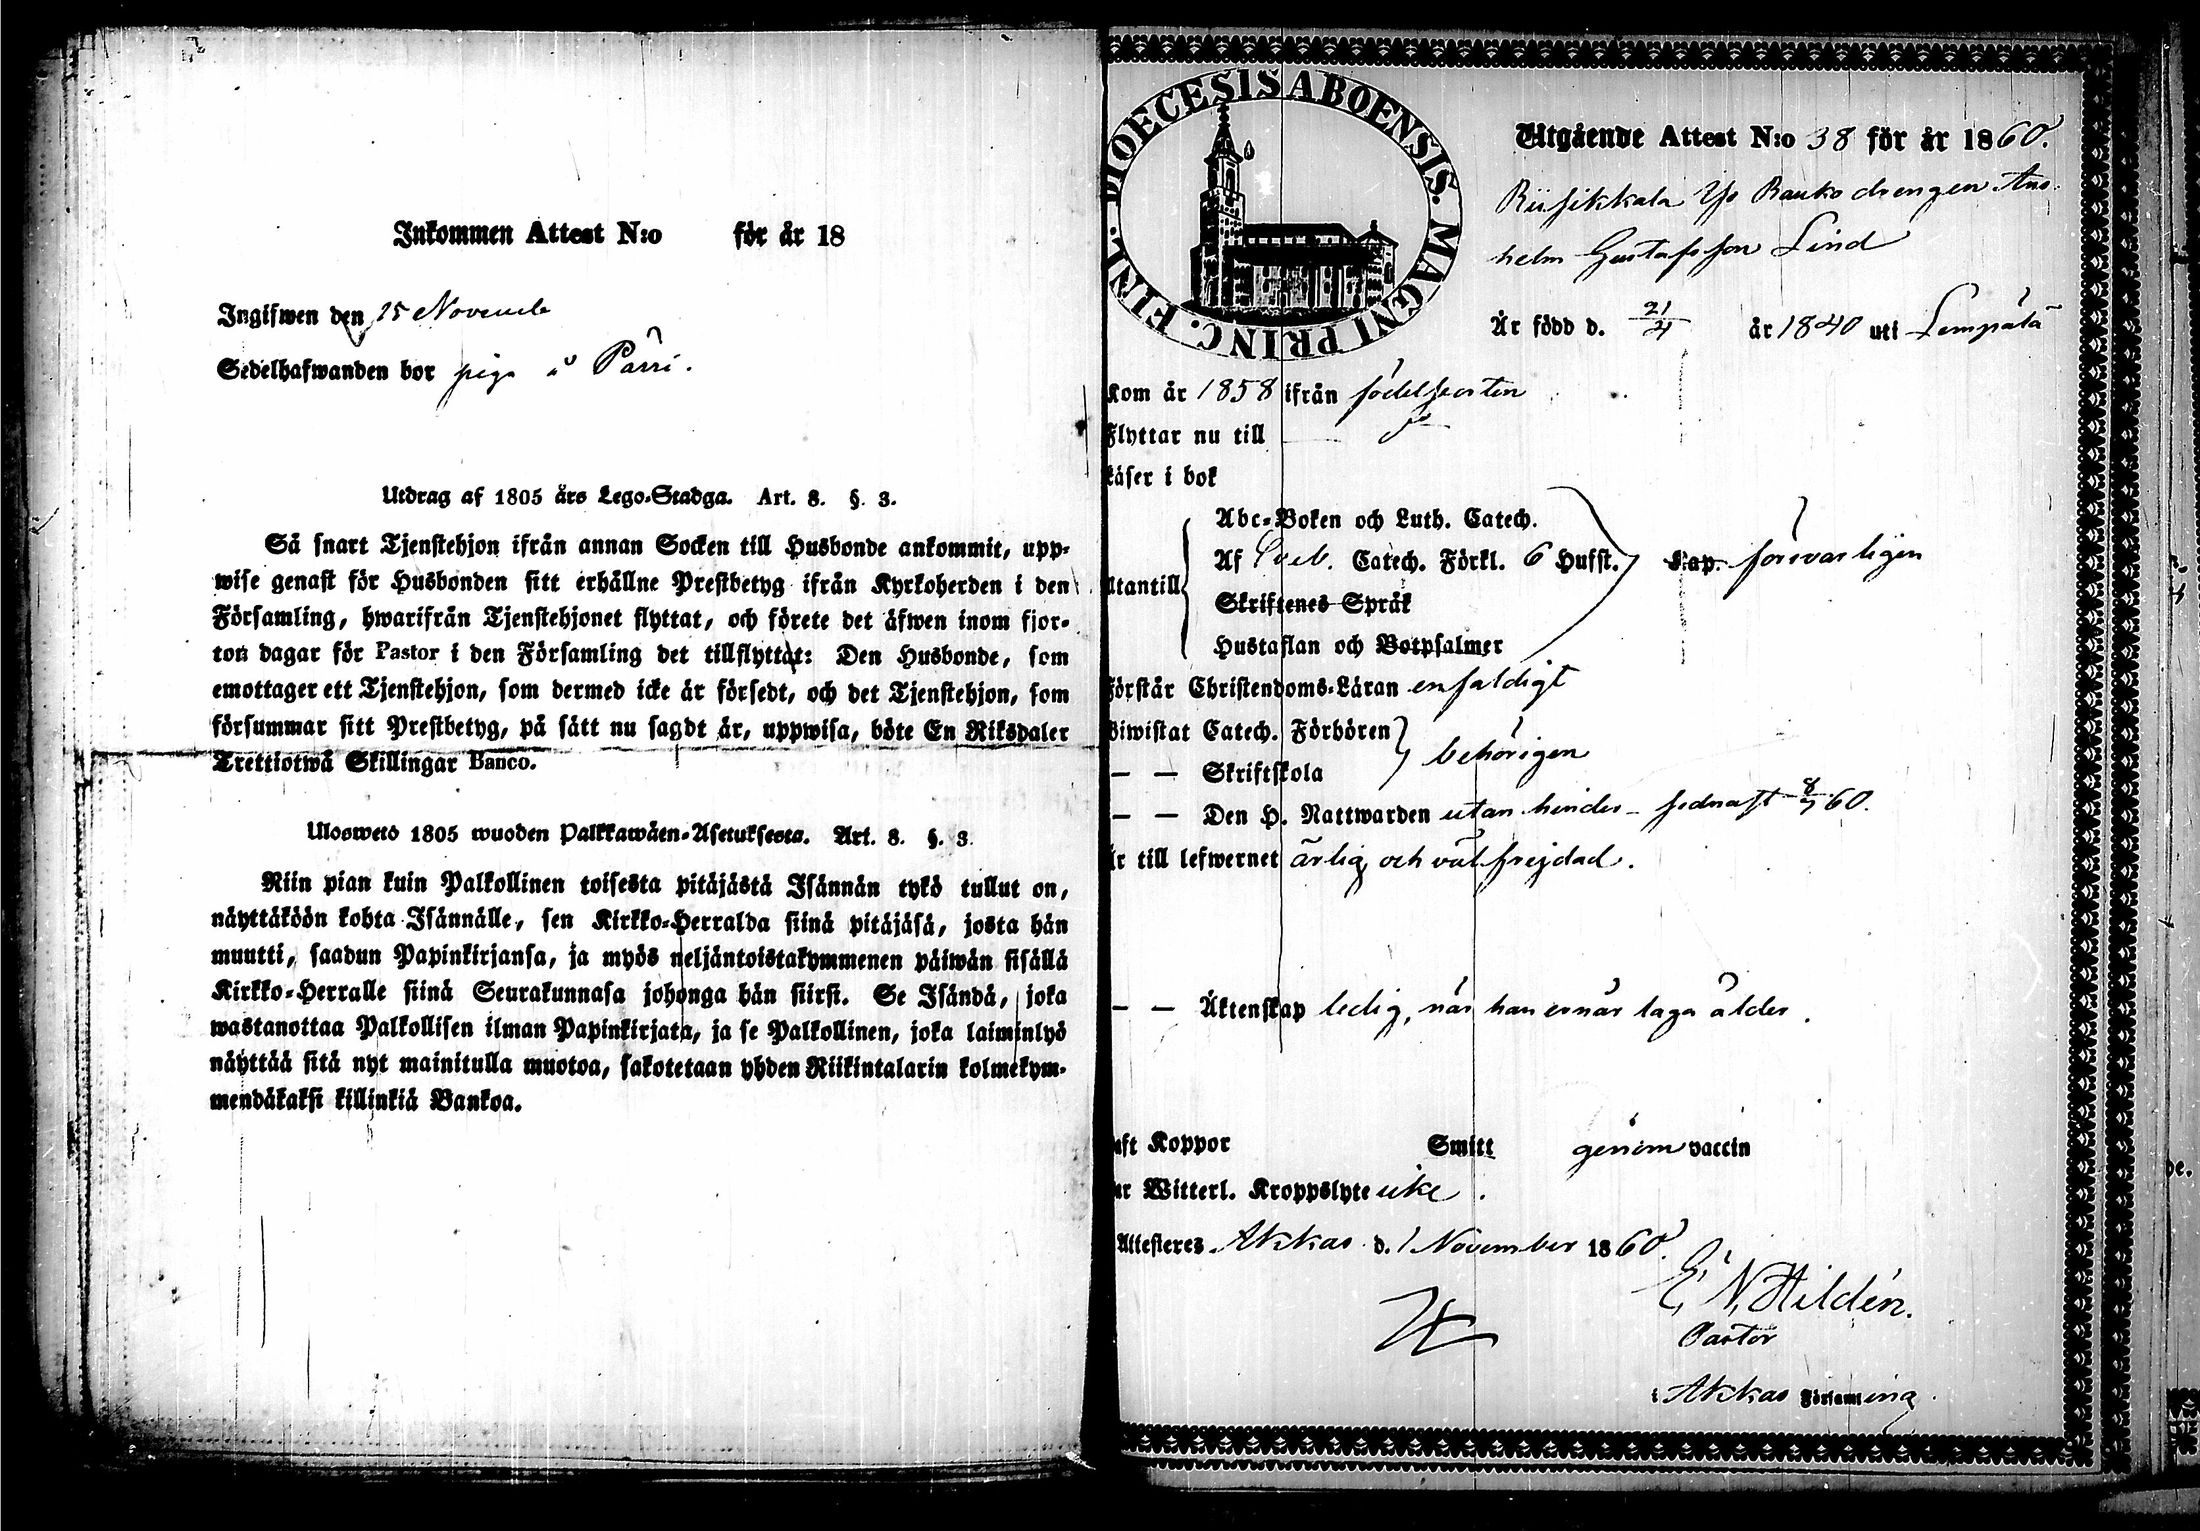 Inkommen Attest N:o för år 18
Ingifwen den 25 Novemb
Sedelhafwanden bor piga å Pärri.
Utdrag af 1805 års Lego-Stadga. Art. 8. §. 3.
Så snart Tjenstehjon ifrån annan Socken till Husbonde ankommit, upp-
wise genast för Husbonden sitt erhållne Prestbetyg ifrån Kyrkoherden i den
Församling, hwarifrån Tjenstehjonet flyttat, och förete det äfwen inom fjor-
ton dagar för Pastor i den Församling det tillflyttat: Den Husbonde, som
emottager ett Tjenstehjon, som dermed icke är försedt, och det Tjenstehjon, som
försummar sitt Prestbetyg, på sätt nu sagdt är, uppwisa, böte En Riksdaler
Trettiotwå Skillingar Banco.
Uloswetö 1805 wuoden Palkkawäen-Asetuksesta. Art. 8. §. 3.
Niin pian kuin Palkollinen toisesta pitäjästä Isännän tykö tullut on,
näyttäköön kohta Isännälle, sen Kirkko-Herralda siinä pitäjäsä, josta hän
muutti, saadun Papinkirjansa, ja myös neljäntoistakymmenen päiwän sisällä
Kirkko-Herralle siinä Seurakunnasa johonga hän siirsi. Se Isändä, joka
wastanottaa Palkollisen ilman Papinkirjata, ja se Palkollinen, joka laiminlyö
näyttää sitä nyt mainitulla muotoa, sakotetaan yhden Riikintalarin kolmekym-
mendäkaksi killinkiä Bankoa.
DIOECESIS ABOENSIS. MAGNI PRINC. FINL.
Utgående Attest N:o 38 för år 1860.
Riisikkala Rauko drengen An-
helm Gustafsson Lind
Är född d. 21/4 år 1840 uti Lempälä
Kom år 1858 ifrån födelseorten
Flyttar nu till
Läser i bok
Abc-Boken och Luth. Catech.
Af Sveb. Catech. Förkl. 6 Hufst. Kap. försvarligen
Utantill
Skriftenes Språk
Hustaflan och Botpsalmer
Förstår Christendoms-Läran enfaldigt
Biwistat Catech. Förhören
behörigen
— — Skriftskola
— — Den H. Nattwarden utan hinder - sednast 8/7 60.
Är till lefwernet ärlig och välfrejdad.
— — Äktenskap ledig, när han ernår laga ålder.
Haft Koppor Smitt genom vaccin
Har Witterl. Kroppslyte icke.
Attesteres Akkas d. 1 November 1860.
E. N. Hildén.
Pastor
i Akkas Församling